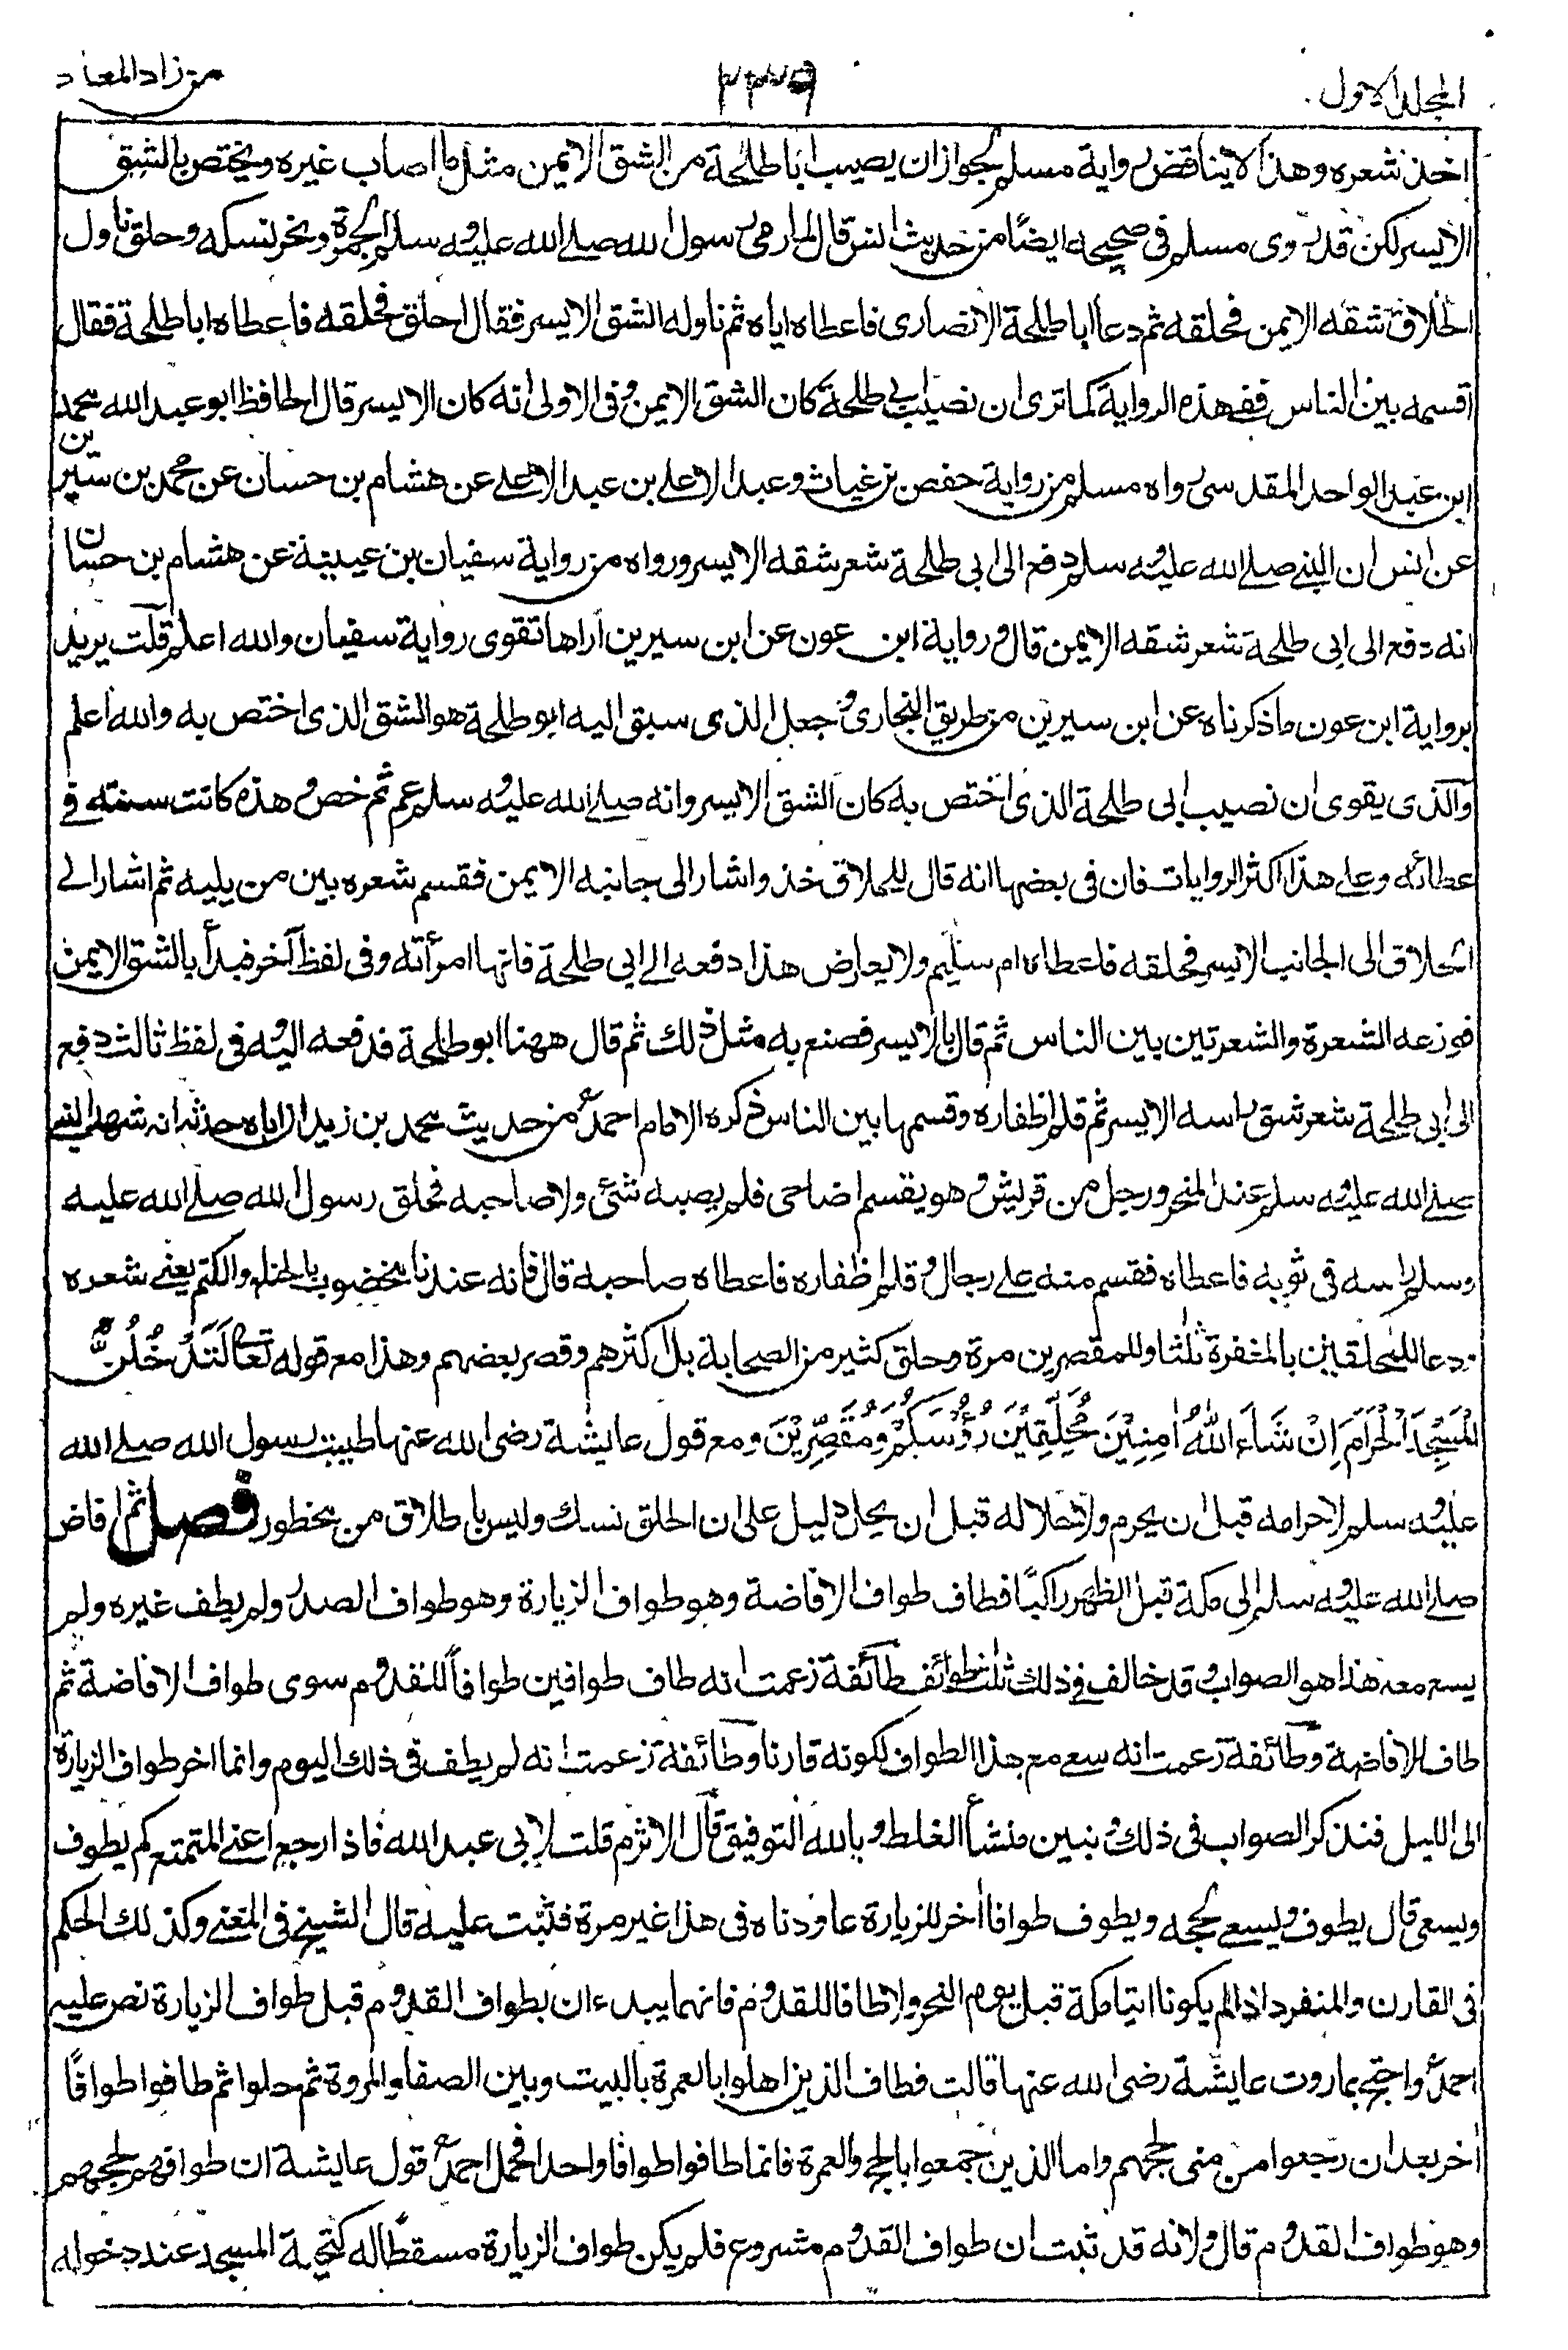 المجلد الاول
من زاد المعاد
اخذ شعره وهذا لا يناقض رواية مسلم لجواز ان يصيب ابا طلحة من الشق الايمن مثل ما اصاب غيره ويختص بالشق
الايسر لكن قد روى مسلم فى صحيحه ايضًا من حديث انس قال لما رمى رسول الله صلے الله عليه وسلم الجمرة ونحر نسكه وحلق ناول
الحلاق شقه الايمن فحلقه ثم دعا ابا طلحة الانصارى فاعطاه اياه ثم ناوله الشق الايسر فقال احلق فحلقه فاعطاه ابا طلحة فقال
اقسمه بين الناس ففے هذه الرواية كما ترى ان نصيب ابى طلحة كان الشق الايمن وفى الاولى انه كان الايسر قال الحافظ ابو عبد الله محمد
ابن عبد الواحد المقدسى رواه مسلم من رواية حفص بن غياث وعبد الاعلے بن عبد الاعلے عن هشام بن حسان عن محمد بن سيرين
عن انس ان النبے صلے الله عليه وسلم دفع الى ابى طلحة شعر شقه الايسر ورواه من رواية سفيان بن عيينة عن هشام بن حسان
انه دفع الى ابى طلحة شعر شقه الايمن قال ورواية ابن عون عن ابن سيرين اراها تقوى رواية سفيان والله اعلم قلت يريد
برواية ابن عون ما ذكرناه عن ابن سيرين من طريق البخارى وجعل الذى سبق اليه ابو طلحة هو الشق الذى اختص به والله اعلم
والذى يقوى ان نصيب ابى طلحة الذى اختص به كان الشق الايسر وانه صلے الله عليه وسلم عم ثم خص وهذه كانت سنته فے
عطائه وعلے هذا اكثر الروايات فان فى بعضها انه قال للحلاق خذ واشار الى جانبه الايمن فقسم شعره بين من يليه ثم اشار الے
الحلاق الى الجانب الايسر فحلقه فاعطاه ام سليم ولا يعارض هذا دفعه الے ابى طلحة فانها امرأته وفى لفظ آخر فبدأ بالشق الايمن
فوزعه الشعرة والشعرتين بين الناس ثم قال بالايسر فصنع به مثل ذلك ثم قال ههنا ابو طلحة فدفعه اليه وفى لفظ ثالث دفع
الى ابى طلحة شعر شق راسه الايسر ثم قلم اظفاره وقسمها بين الناس وذكره الامام احمدؒ من حديث محمد بن زيد ان اباه حدثه انه شهد النبے
صلے الله عليه وسلم عند المنحر ورجل من قريش وهو يقسم اضاحى فلم يصبه شئ ولا صاحبه فحلق رسول الله صلے الله عليه
وسلم راسه فى ثوبه فاعطاه فقسم منه علے رجال وقلم اظفاره فاعطاه صاحبه قال فانه عندنا مخضوب بالحناء والكتم يعنے شعره
ودعا للمحلقين بالمغفرة ثلثا وللمقصرين مرة وحلق كثير من الصحابة بل اكثرهم وقصر بعضهم وهذا مع قوله تعالى لَتَدْخُلُنَّ
الْمَسْجِدَ الْحَرَامَ اِنْ شَاءَ اللهُ اٰمِنِيْنَ مُحَلِّقِيْنَ رُؤُسَكُمْ وَمُقَصِّرِيْنَ ومع قول عايشة رضى الله عنها طيبت رسول الله صلے الله
عليه وسلم لاحرامه قبل ان يحرم ولاحلاله قبل ان يحل دليل على ان الحلق نسك وليس باطلاق من محظور فصل ثم افاض
صلے الله عليه وسلم الى مكة قبل الظهر راكبًا فطاف طواف الافاضة وهو طواف الزيارة وهو طواف الصدر ولم يطف غيره ولم
يسع معه هذا هو الصواب وقد خالف فى ذلك ثلث طوائف طائفة زعمت انه طاف طوافين طوافاً للقدوم سوى طواف الافاضة ثم
طاف للافاضة وطائفة زعمت انه سعے مع هذا الطواف لكونه قارنا وطائفة زعمت انه لم يطف فى ذلك اليوم وانما اخر طواف الزيارة
الى الليل فنذكر الصواب فى ذلك ونبين منشأ الغلط وبالله التوفيق قال الاثرم قلت لابى عبد الله فاذا رجع اعنے المتمتع كم يطوف
ويسعى قال يطوف ويسعے لحجه ويطوف طوافا اخر للزيارة عاودناه فى هذا غير مرة فثبت عليه قال الشيخ فى المغنے وكذلك الحكم
فى القارن والمنفرد اذا لم يكونا اتيا مكة قبل يوم النحر ولا طافا للقدوم فانهما يبدءان بطواف القدوم قبل طواف الزيارة نص عليه
احمدؒ واحتج بما روت عايشة رضى الله عنها قالت فطاف الذين اهلوا بالعمرة بالبيت وبين الصفا والمروة ثم حلوا ثم طافوا طوافًا
اخر بعد ان رجعوا من منى لحجهم واما الذين جمعوا بالحج والعمرة فانما طافوا طوافا واحدا فحمل احمدؒ قول عايشة ان طوافهم لحجهم
وهو طواف القدوم قال ولانه قد ثبت ان طواف القدوم مشروع فلم يكن طواف الزيارة مسقطًا له كتحية المسجد عند دخوله